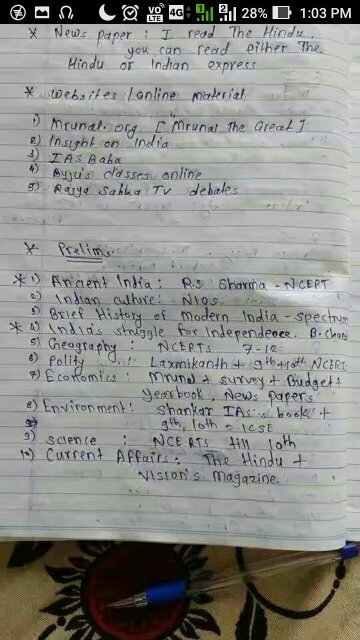 VO LTE 4G 1 2 28% 1:03 PM
* News paper : I read The Hindu.
you can read either The
Hindu or Indian express
* Websites / online material
1) Mrunal. org [ "Mrunal The Great ]
2) Insight on India
3) IAS Baba
4) Byju's classes online
5) Rajya Sabha TV debates
* Prelims
* 1) Ancient India : R.S Sharma - NCERT
2) Indian culture : NIOS
3) Brief History of Modern India - Spectrum
* 4) India's struggle for Independence. B.
5) Geography : NCERTs 7-12
6) Polity : Laxmikanth + 9th+10th NCERT
7) Economics : Mrunal + survey + Budget +
Yearbook, News papers
8) Environment : Shankar IAS's book +
9th, 10th = ICSE
9) Science : NCERTs till 10th
10) Current Affairs : The Hindu +
Vision's Magazine.